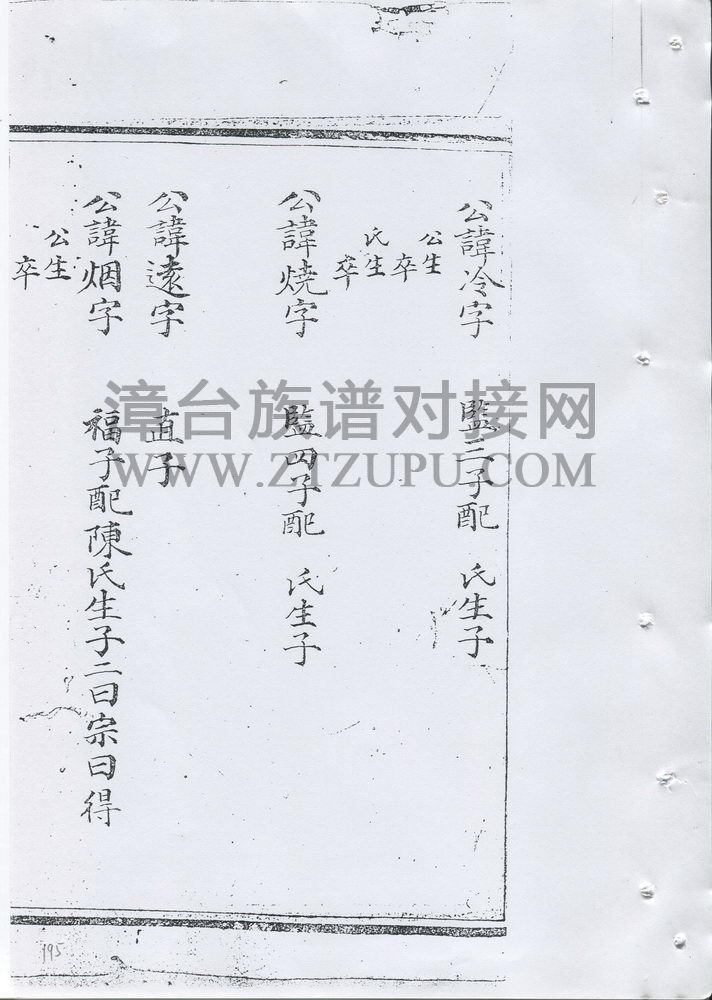 公諱冷字 監三子配 氏生子
公生
卒
氏生
卒
公諱燒字 監四子配 氏生子
公諱遠字 直子
公諱烟字 福子配陳氏生子二曰宗曰得
公生
卒
漳台族谱对接网
WWW.ZTZUPU.COM
195